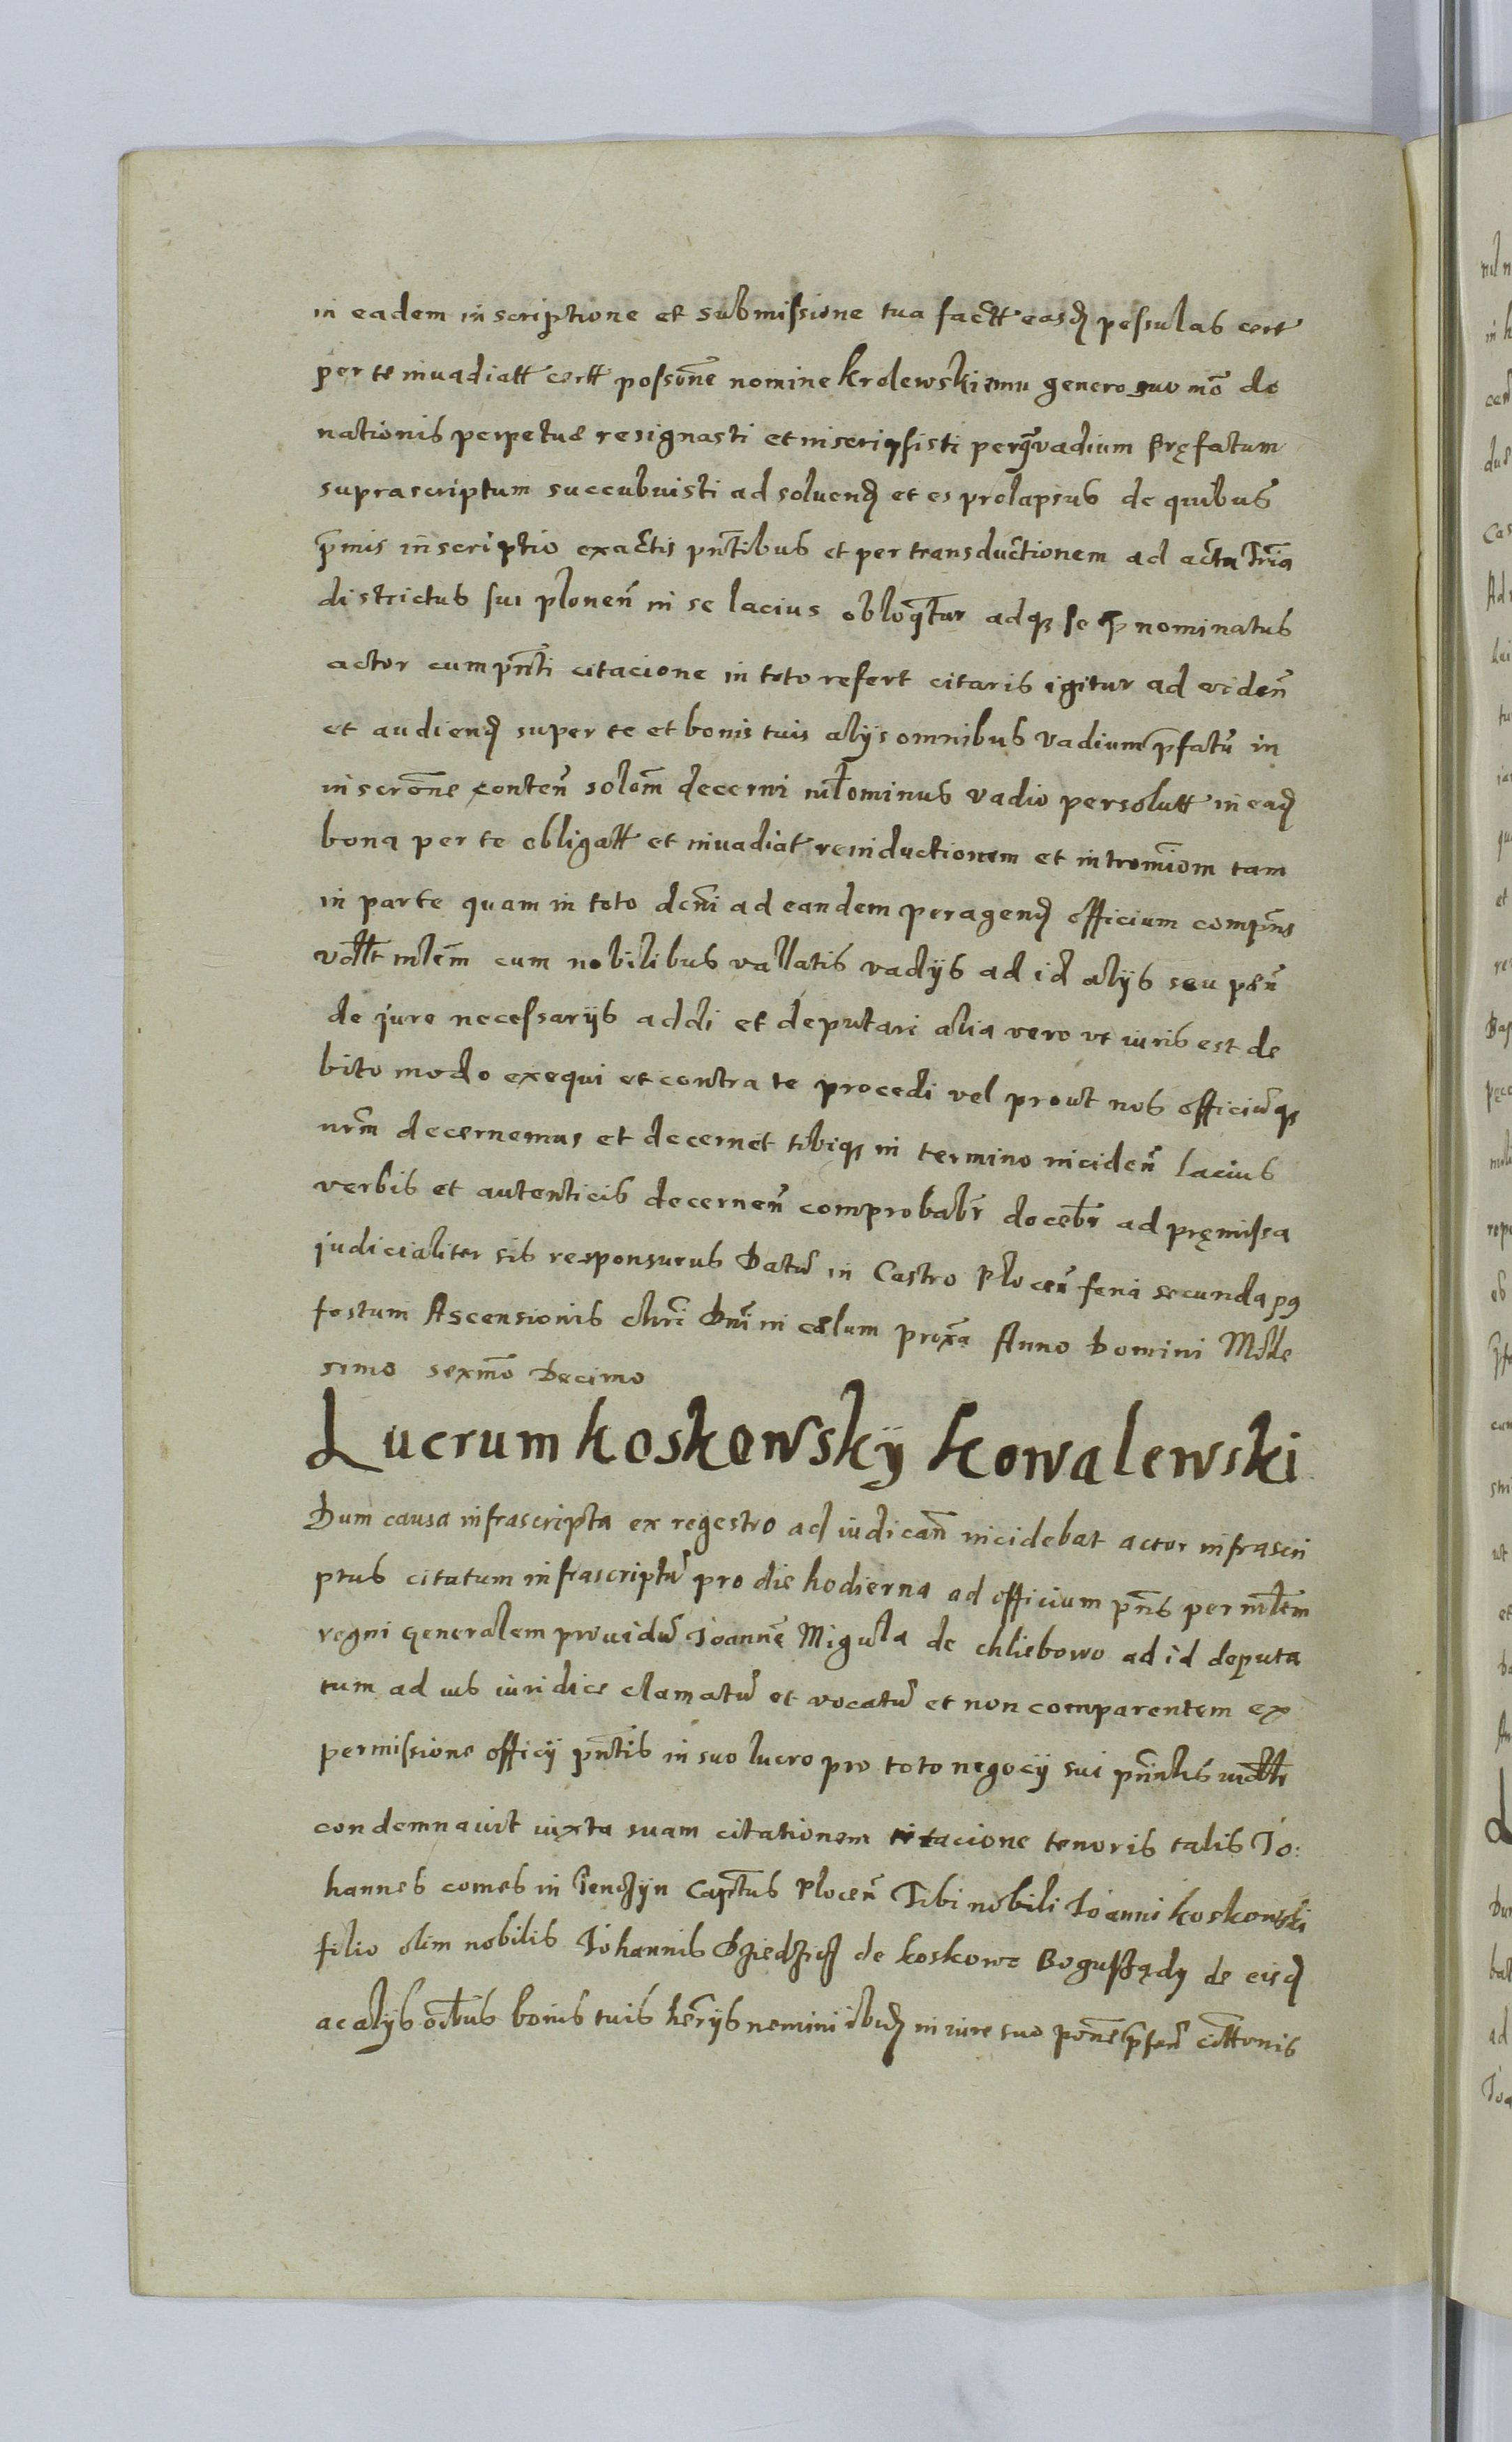 in eadem inscriptione et submissione tua factt easq pessulas cert
per te invadiatt certt possone nomine Krolewskiemu genero suo mo do
nationis perpetuæ resignasti et inscripsisti perq vadium præfatum
suprascriptum succubuisti ad solvend et es prolapsus de quibus
pmis inscriptio ex actis pntibus et per transductionem ad acta Trria
districtus sui plonen in se lacius obloqtur adq se pnominatus
actor cum pnti citacione in toto refert citaris igitur ad viden
et audiend super te et bonis tuis alijs omnibus vadium pfatu in
inscrone conten solom decerni nlominus vadio persolutt in ead
bona per te obligatt et invadiat reinductionem et intromiom tam
in parte quam in toto dcni ad eandem peragend officium compns
mlem cum nobilibus vallatis vadijs ad id alijs seu pæn
de jure necessarijs addi et deputari alia vero ut iuris est de
bito modo exequi et contra te procedi vel prout nos officiuq
nrm decernemus et decernet tibiq in termino inciden lacius
verbis et autenticis decernen comprobabr docebr ad præmissa
judicialiter sis responsurus Datu in Castro Plocen feria secunda p9
festum Ascensionis chri Dni in cælum proxa Anno Domini Mille
simo sexmo Decimo
Lucrum Koskowskÿ Kowalewski
Dum causa infrascripta ex regestro ad iudican incidebat actor infrascri
ptus citatum infrascriptu pro die hodierna ad officium pns per mlem
regni generalem providu Joanne Migula de Chliebowo ad id deputa
tum ad ius iuridice clamatu et vocatu et non comparentem ex
permissione officij pntis in suo lucro pro toto negocij sui pninlis
condemnavit iuxta suam citationem citacione tenoris talis Jo:
hannes comes in Tenczÿn Captus Plocen Tibi nobili Joanni Koskowski
filio olim nobilis Johannis Dziedzicz de Koskowo Bogusządy de eisd
ac alijs oibus bonis tuis herijs nemini ibid in iure suo pone pfen cittonis